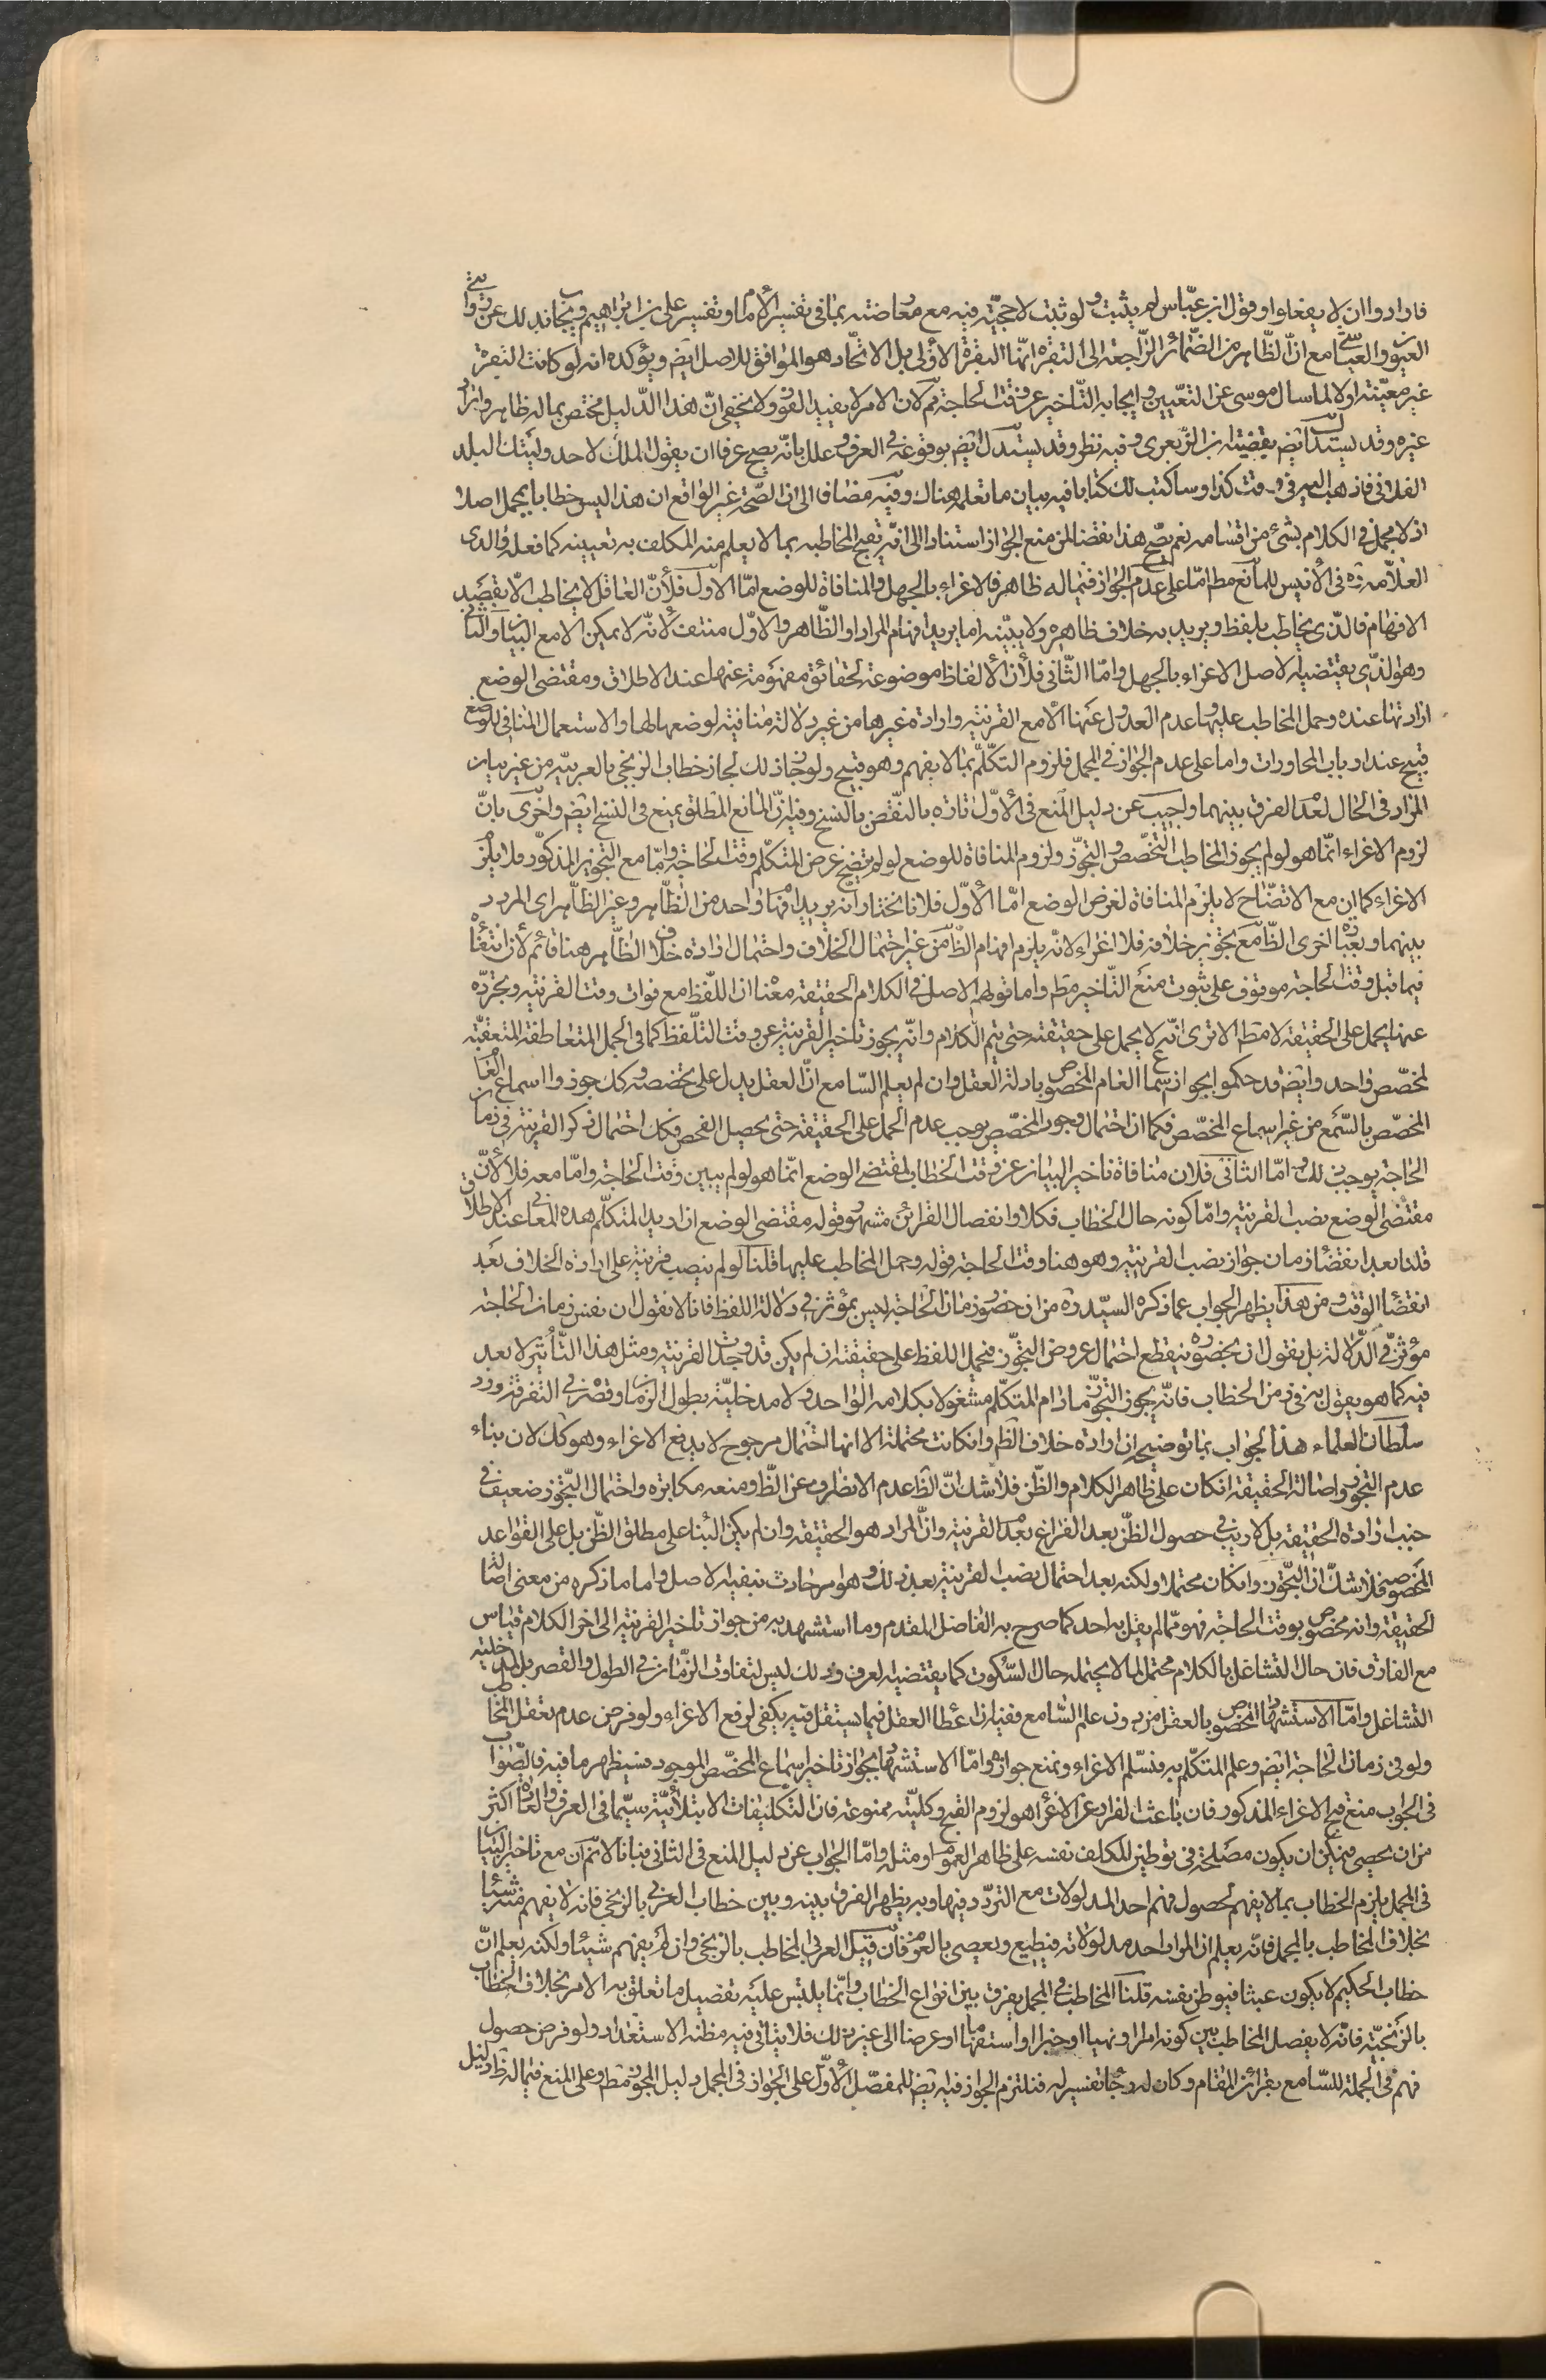 فارادوا ان لا يفعلوا وقول ابن عبّاس لم يثبت ولو ثبت لا حجيّة فيه مع معارضته بما فى تفسير الأمام او تفسير على بن ابراهيم وبجانب ذلك عن روايتى
العيون والعيّاشى مع انّ الظّاهر من الضّمائر الرّاجعة الى البقرة انّها البقرة الاولى بل الاتّحاد هو الموافق للاصل ايضً ويؤكده انه لو كانت البقرة
غير معيّنة اولا لما سال موسى عن التعيين وايجابه التّاخير عن وقت الحاجة ثم لان الامر لا يفيد الفور ولا يخفى انّ هذا الدّليل مختص بما له ظاهر واراد
غيره وقد يستدل ايضً بقضيّة ابن الزّبعرى وفيه نظر وقد يستدل ايضً بوقوعه فى العرف وعلل بانّه يصح عرفا ان يقول الملك لاحد وليتك البلد
الفلانى فاذهب اليه فى وقت كذا وساكتب لك كتابا فيه بيان ما تعلمه هناك وفيه مضافا الى ان الصّحة غير الواقع ان هذا ليس خطابا بمجمل اصلا
اذ لا مجمل فى الكلام بشئ من اقسامه نعم يصح هذا نقضا لمن منع الجواز استنادا الى انّه يقبح المخاطبه بما لا يعلم منه المكلف به تعيينه كما فعله والدى
العلاّمه ره فى الأنيس للمانع مط امّا على عدم الجواز فيما له ظاهر فالاغراء بالجهل والمنافاة للوضع امّا الاول فلأنّ العاقل لا يخاطب الّا بقصد
الافهام فالّذى يخاطب بلفظ ويريد به خلاف ظاهره ولا يبيّنه اما يريد افهام المراد او الظّاهر والاوّل منتف لأنّه لا يمكن الا مع البيان والثانى
وهو الّذى يقتضيه الاصل الاغراء بالجهل وامّا الثّانى فلأن الألفاظ موضوعة لحقائق مفهومة عنها عند الاطلاق ومقتضى الوضع
ارادتها عنده وحمل المخاطب عليها وعدم العدول عنها الّا مع القرينة وارادة غيرها من غير دلالة منافية لوضعها لها والاستعمال المنافى للوضع
قبيح عند ارباب المحاورات واما على عدم الجواز فى المجمل فلزوم التكلّم بما لا يفهم وهو قبيح ولو جاز ذلك لجاز خطاب الزنجى بالعربيّة من غير بيان
المراد فى الحال لعدم الفرق بينهما واجيب عن دليل المنع فى الأوّل تارة بالنقض بالنسخ وفيه انّ المانع المطلق يمنع فى النسخ ايضً واخرى بانّ
لزوم الاغراء انّما هو لو لم يجوز المخاطب التخصّص والتجوّز ولزوم المنافاة للوضع لو لم يتضح غرض المتكلّم وقت الحاجة وامّا مع التجويز المذكور فلا يلزم
الاغراء كما ان مع الاتضّاح لا يلزم المنافاة لغرض الوضع امّا الأوّل فلانا نختار انه يريد افهام واحد من الظّاهر وغير الظّاهر اى المردد
بينهما وبعبارة اخرى الظّ مع تجويز خلافه فلا اغراء لانّه يلزم افهام الظّ من غير احتمال الخلاف واحتمال ارادة خلاف الظّاهر هنا قائم لأن انتفائه
فيما قبل وقت الحاجة موقوف على ثبوت منع التّاخير مط واما قولهم الاصل فى الكلام الحقيقة معناه ان اللّفظ مع فوات وقت القرينة وتجرّده
عنها يحمل على الحقيقة لا مط الا ترى انّه لا يحمل على حقيقته حتى يتم الكلام وانّه يجوز تاخير القرينة عن وقت التلّفظ كما فى الجمل المتعاطفة المتعقبّة
لمخصّص واحد وايضً قد حكموا بجواز سماع العام المخصوص بادلة العقل وان لم يعلم السّامع انّ العقل يدل على تخصيصه وكك جوزوا اسماع العام
المخصّص بالسّمع من غير اسماع المخصّص فكما ان احتمال وجود المخصّص يوجب عدم الحمل على الحقيقة حتى يحصل الفحص فكك احتمال ذكر القرينة فى زمان
الحاجة يوجب ذلك وامّا الثانى فلان منافاة تاخير البيان عن وقت الخطاب لمقتضى الوضع انّما هو لو لم يبين وقت الحاجة وامّا معه فلا لأنّ
مقتضى الوضع نصب القرينة وامّا كونه حال الخطاب فكلا وانفصال القرائن مشهور قوله مقتضى الوضع ان اريد المتكلّم هذه المعانى عند الاطلاق
قلنا بعد انقضاء زمان جواز نصب القرينة وهو هنا وقت الحاجة قوله وحمل المخاطب عليها قلنا لو لم ينصب قرينة على ارادة الخلاف بعد
انقضاء الوقت ومن هذا يظهر الجواب عما ذكره السيّد ره من ان حضور زمان الحاجة ليس بمؤثر فى دلالة اللفظ فانا لا نقول ان نفس زمان الحاجة
مؤثر فى الدّلالة بل نقول ان بحضوره ينقطع احتمال عروض التجوّز فيحمل اللفظ على حقيقته ان لم يكن قد وجدت القرينة ومثل هذا التّأثير لا بعد
فيه كما هو يقول به فى زمن الخطاب فانّه يجوز التجوّز ما دام المتكلّم مشغولا بكلامه الواحد ولا مدخليّة بطول الزمان وقصره فى التفرقة ورد
سلطان العلماء هذا الجواب بما توضيحه ان ارادة خلاف الظّ وان كانت محتملة الا انها احتمال مرجوح لا يدفع الاغراء وهو كك لان بناء
عدم التجوّز واصالة الحقيقة ان كان على ظاهر الكلام والظّن فلا شك انّ الظّ عدم الانصراف عن الظّ ومنعه مكابرة واحتمال التّجوّز ضعيف فى
جنب ارادة الحقيقة بل لا ريب فى حصول الظّن بعد الفراغ بعدم القرينة وانّ المراد هو الحقيقة وان لم يكن البناء على مطلق الظّن بل على القواعد
المخصوصة فلا شكّ ان التّجوّز وان كان محتملا ولكنه بعد احتمال نصب القرينة بعد ذلك وهو امر حادث ينفيه الاصل واما ما ذكره من معنى اصالة
الحقيقة وانه مخصوص بوقت الحاجة فهو ممّا لم يقل به احد كما صرح به الفاضل المقدم وما استشهد به من جواز تاخير القرينة الى اخر الكلام قياس
مع الفارق فان حال التشاغل بالكلام محتمل لما لا يحتمله حال السّكوت كما يقتضيه العرف وذلك ليس لتفاوت الزّمان فى الطول والقصر بل لمدخلية
التشاغل وامّا الاستشهاد بالمخصوص بالعقل من دون علم السّامع ففيه ان اعطاء العقل فيما يستقل فيه يكفى لرفع الاغراء ولو فرض عدم تعقل المخاطب
ولو فى زمان الحاجة ايضً وعلم المتكلّم به فنسلّم الاغراء ونمنع جوازه وامّا الاستشهاد بجواز تاخير اسماع المخصّص الموجود فسيظهر ما فيه فالصّواب
فى الجواب منع قبح الاغراء المذكور فان باعث الفرار عن الاغراء هو لزوم القبح وكليّته ممنوعة فان التّكليفات الابتلائيّة سيّما فى العرف والعادة اكثر
من ان يحصى فيمكن ان يكون مصلحة فى توطين المكلف نفسه على ظاهر العموم او مثله وامّا الجواب عن دليل المنع فى الثانى فبانا لا نمّ ان مع تاخير البيان
فى المجمل يلزم الخطاب بما لا يفهم لحصول فهم احد المدلولات مع التردّد فيها وبه يظهر الفرق بينه وبين خطاب العربى بالزنجى فانه لا يفهم منه شيئا
بخلاف المخاطب بالمجمل فانّه يعلم ان المراد احد مدلولاته فيطيع ويعصى بالعزم فان قيل العربى المخاطب بالزنجى وان لم يفهم شيئا ولكنه يعلم انّ
خطاب الحكيم لا يكون عبثا فيوطن نفسه قلنا المخاطب فى المجمل يفرق بين انواع الخطاب وانّما يلتبس عليه تفصيل ما تعلق به الامر بخلاف الخطاب
بالزنجيّة فانّه لا يفصل المخاطب بين كونه امرا ونهيا او خبرا او استفهاما او عرضا الى غير ذلك فلا يتاتى فيه مظنه الاستعداد ولو فرض حصول
فهم فى الجملة للسّامع بقرائن المقام وكان له رجاء تفسير له فنلتزم الجواز فيه ايضً للمفصّل الأوّل على الجواز فى المجمل دليل المجوز مط وعلى المنع فيما له ظ دليل